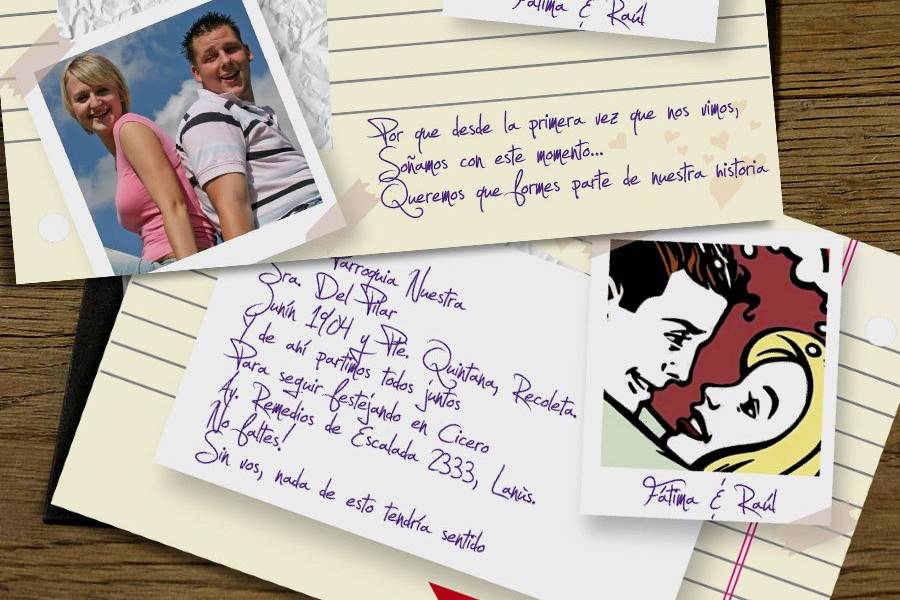 Fátima & Raúl
Por que desde la primera vez que nos vimos,
Soñamos con este momento...
Queremos que formes parte de nuestra historia
Parroquia Nuestra
Sra. Del Pilar
Junín 1904 y Pte. Quintana, Recoleta.
Y de ahí partimos todos juntos
Para seguir festejando en Cicero
Av. Remedios de Escalada 2333, Lanùs.
No faltes!
Sin vos, nada de esto tendría sentido
Fátima & Raúl